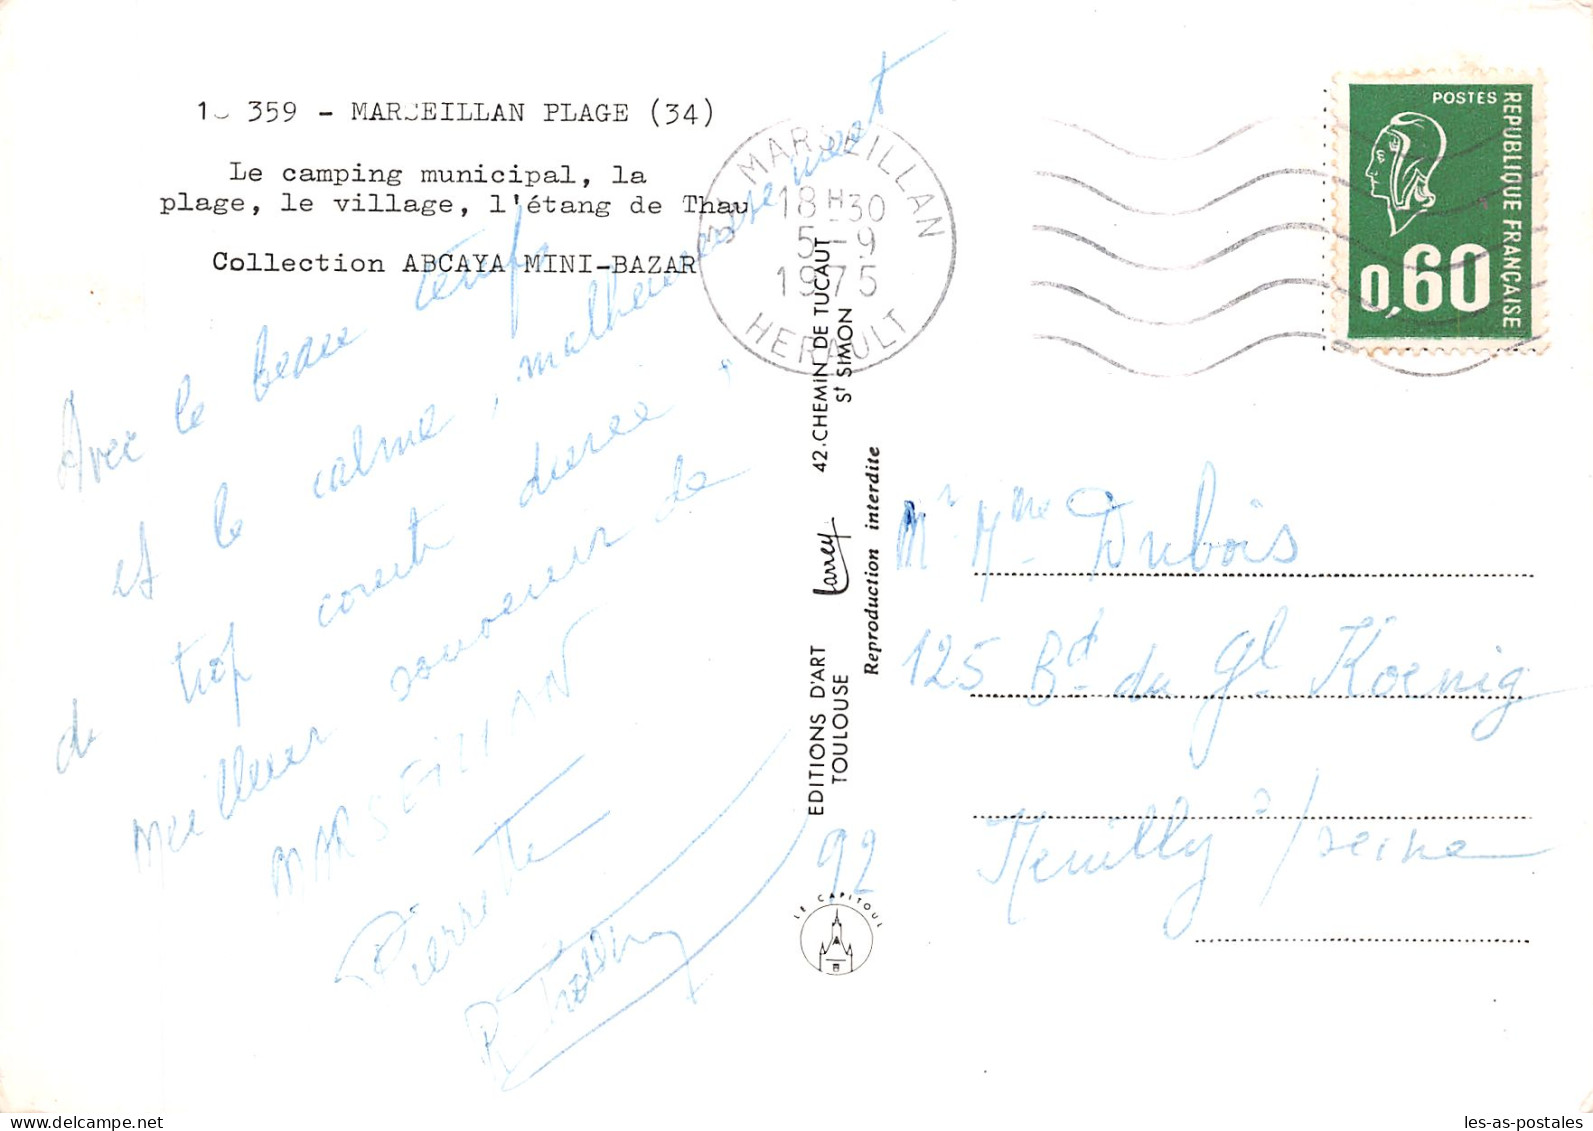 359 - MARSEILLAN PLAGE (34)
Le camping municipal, la
plage, le village, l'étang de Thau
Collection ABCAYA MINI-BAZAR
Avec le beau temps
et le calme, malheureusement
de trop courte durée,
meilleur souvenir de
MARSEILLAN
Pierrette
34 MARSEILLAN
18H30
5-9
1975
HERAULT
POSTES
REPUBLIQUE FRANÇAISE
0,60
EDITIONS D'ART Larrey 42.CHEMIN DE TUCAUT
TOULOUSE St SIMON
Reproduction interdite
LE CAPITOUL
Mr Mme Dubois
125 Bd du Gl Koenig
92 Neuilly s/seine
CPM2JO
les-as-postales